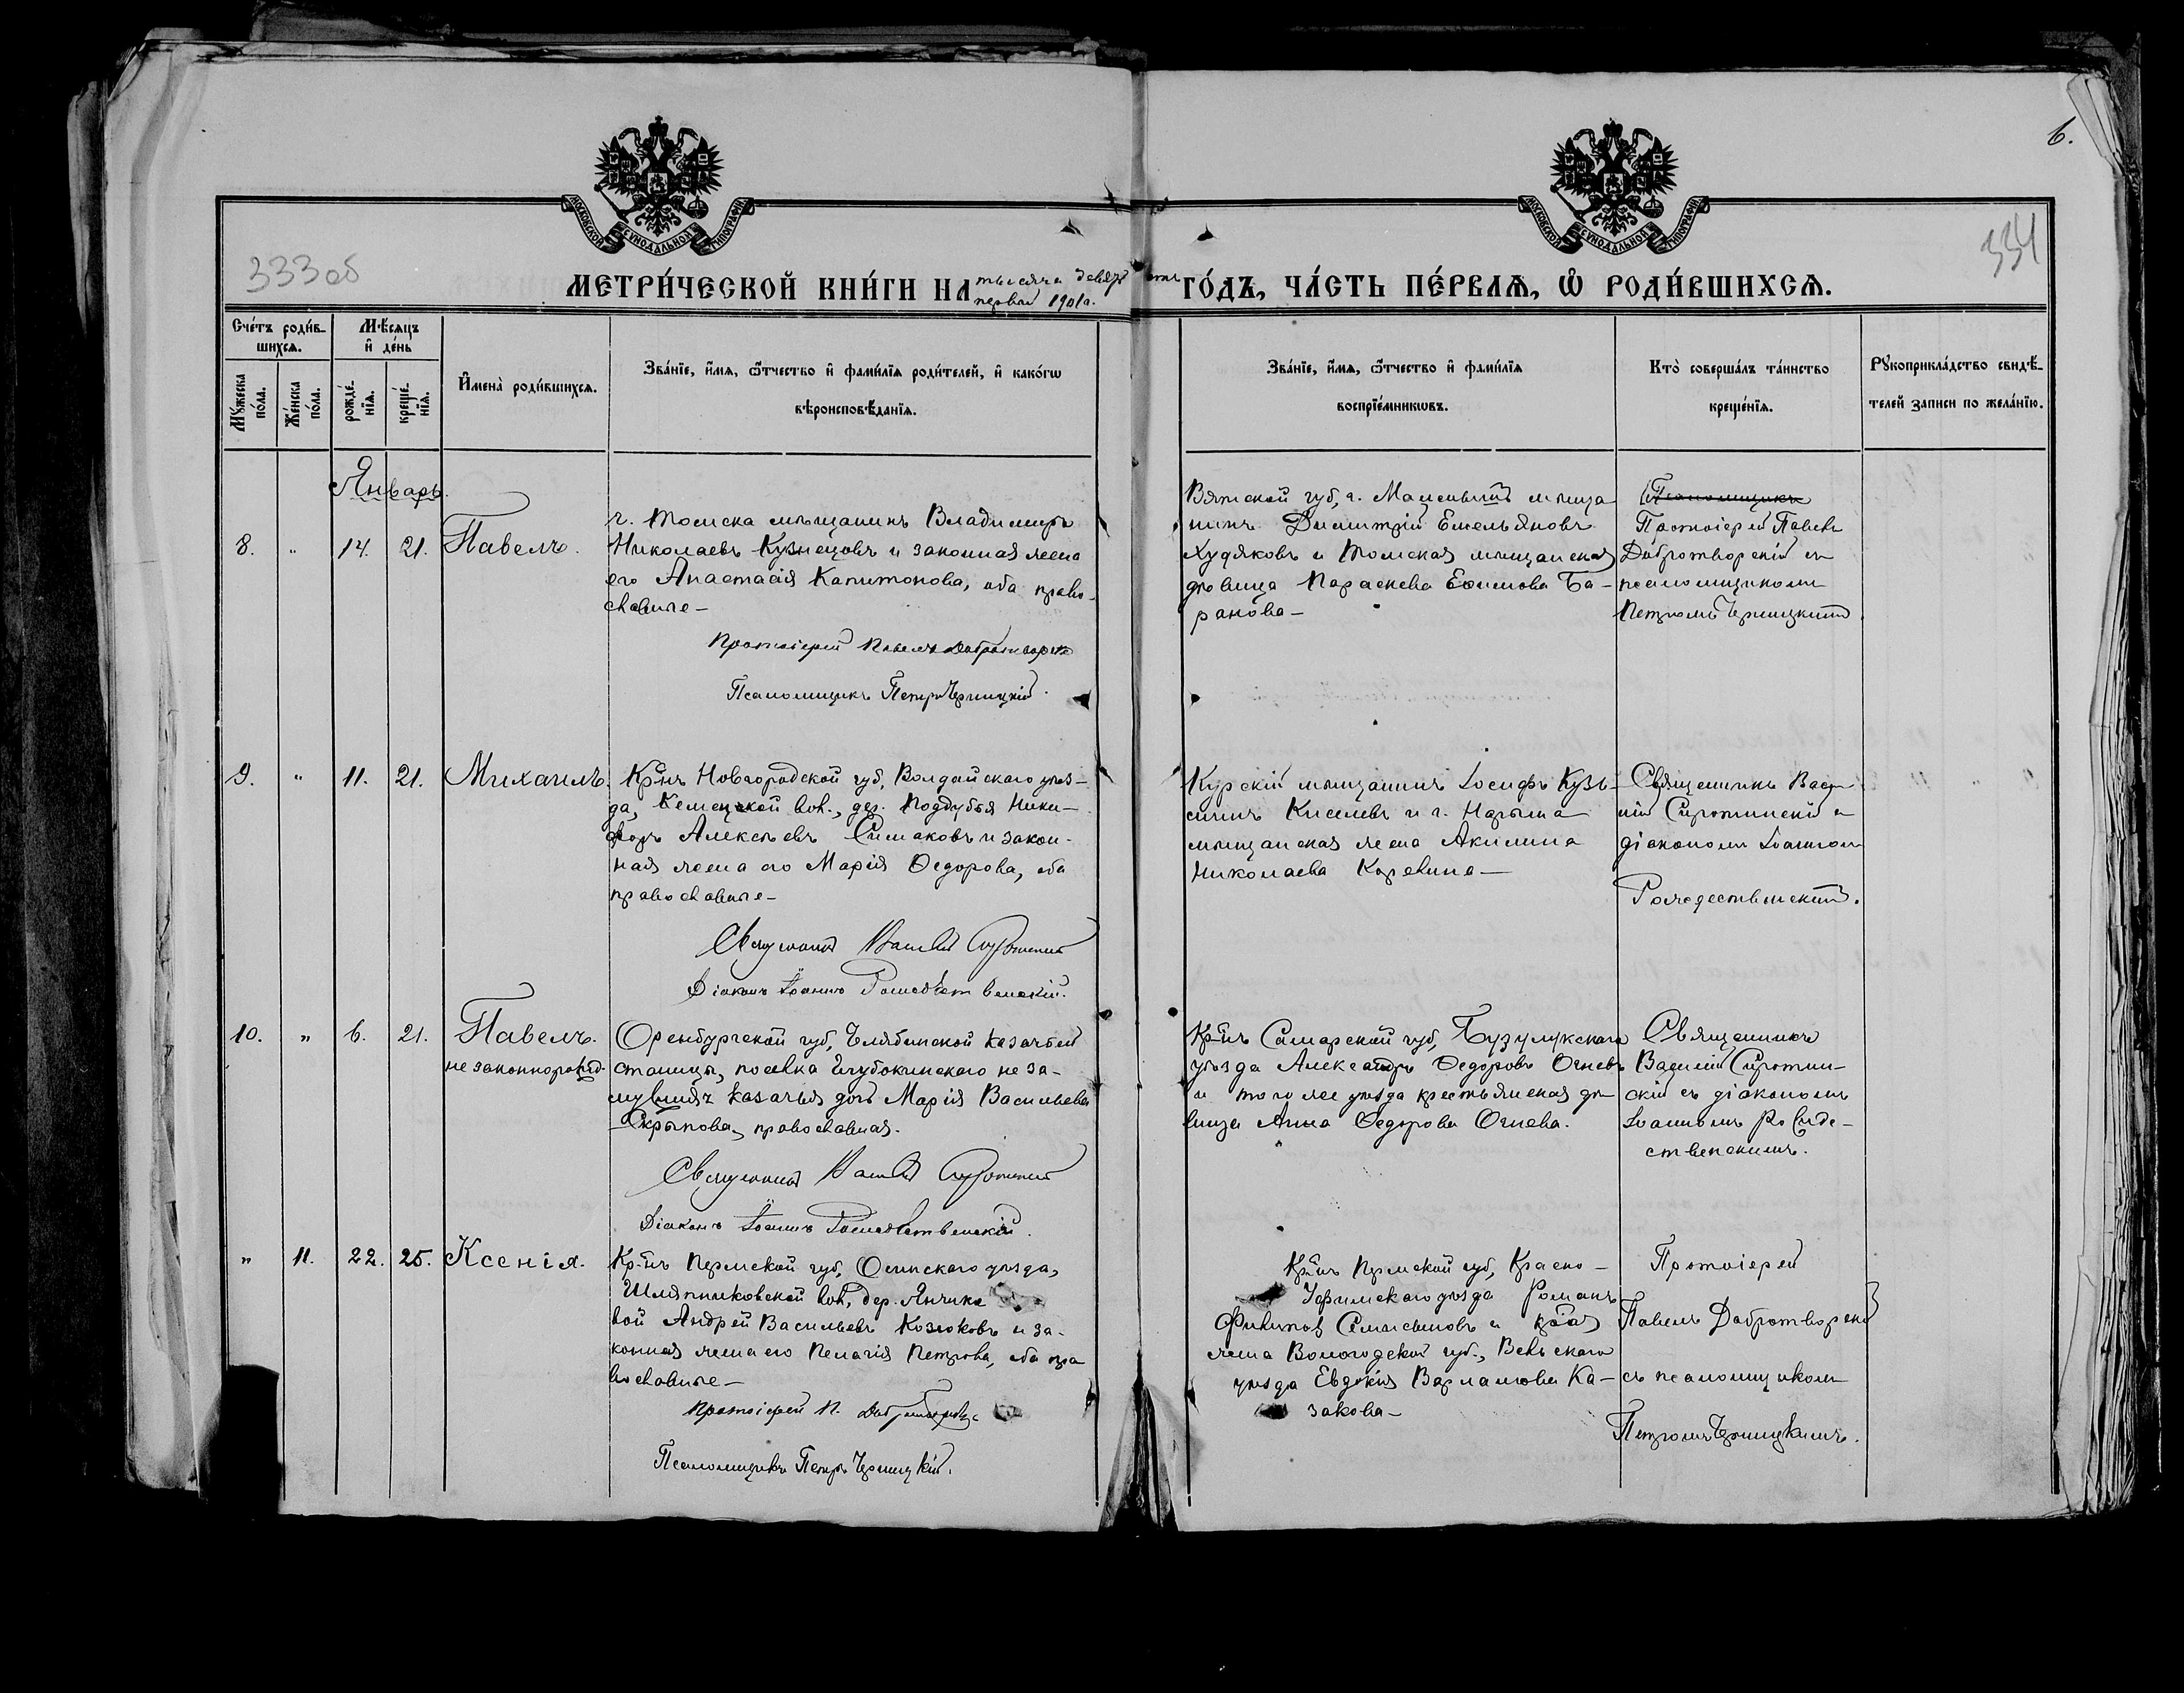 6.
МОСКОВСКОЙ СѴНОДАЛЬНОЙ ТИПОГРАФІИ
МОСКОВСКОЙ СѴНОДАЛЬНОЙ ТИПОГРАФІИ
333 об
334
МЕТРИ́ЧЕСКОЙ КНИ́ГИ НА тысяча девятьсотъ первый 1901 г. ГО́ДЪ, ЧА́СТЬ ПЕ́РВАѦ, Ѡ҆ РОДИ́ВШИХСѦ.
Сче́тъ роди́в-
шихсѧ.
Мꙋ́жеска по́ла.
Же́нска по́ла.
Мѣ́сѧцъ
и҆ де́нь
рожде́-
нїѧ.
креще́-
нїѧ.
И҆мена̀ роди́вшихсѧ.
Зва́нїе, и҆́мѧ, ѻ҆́тчество и҆ фами́лїѧ роди́телей, и҆ како́гѡ
вѣроисповѣ́данїѧ.
Зва́нїе, и҆́мѧ, ѻ҆́тчество и҆ фами́лїѧ
воспрїе́мникѡвъ.
Кто̀ соверша́лъ та́инство
креще́нїѧ.
Рꙋкоприкла́дство свидѣ́-
телей записи по жела́нїю.
Январь.
8. " 14. 21. Павелъ.
г. Томска мѣщанинъ Владиміръ
Николаевъ Кузнецовъ и законная жена
его Анастасія Капитонова, оба право-
славные –
Протоіерей Павелъ Добротворскій
Псаломщикъ Петръ Черницкій.
Вятской губ, г. мѣща
нинъ Димитрій Емельяновъ
Худяковъ и Томская мѣщанская
дѣвица Параскева Ефимова Ба-
ранова –
Псаломщикъ
Протоіерей Павелъ
Добротворскій съ
псаломщикомъ
Петромъ Черницкимъ.
9. " 11. 21. Михаилъ.
Кр-нъ Новгородской губ, Валдайскаго уѣз-
да, вол., дер. Поддубья Ники-
форъ Алексѣевъ Симаковъ и закон-
ная жена его Марія Ѳедорова, оба
православные –
Священникъ Василій Сиротинскій
Діаконъ Іоаннъ Рождественскій.
Курскій мѣщанинъ Іосифъ Кузь-
Киселевъ и г. Нарыма
мѣщанская жена Акилина
Николаева Каревина –
Священникъ Васи-
лій Сиротинскій съ
діакономъ Іоанномъ
Рождественскимъ.
10. " 6. 21. Павелъ.
незаконнорожд.
Оренбургской губ, Челябинской казачьей
станицы, поселка Глубокинскаго неза-
мужняя казачья дочь Марія Васильева
Скрыпова, православная.
Священникъ Василій Сиротинскій
Діаконъ Іоаннъ Рождественскій.
Кр-нъ Самарской губ, Бузулукскаго
уѣзда Александръ Ѳедоровъ Огневъ
и того же уѣзда крестьянская дѣ-
вица Анна Ѳедорова Огнева.
Священникъ
Василій Сиротин-
скій съ діакономъ
Іоанномъ Рожде-
ственскимъ.
" 11. 22. 25. Ксенія.
Кр-нъ Пермской губ, Осинскаго уѣзда,
Шляпниковской вол, дер. Янчико
вой Андрей Васильевъ Козюковъ и за-
конная жена его Пелагія Петрова, оба пра
вославные –
Протоіерей П. Добротворскій
Псаломщикъ Петръ Черницкій.
Кр-нъ Пермской губ, Красно-
Уфимскаго уѣзда Романъ
и кр-ая
жена Вологодской губ., Вельскаго
уѣзда Евдокія Варламова Ка-
закова –
Протоіерей
Павелъ Добротворскій
съ псаломщикомъ
Петромъ Черницкимъ.